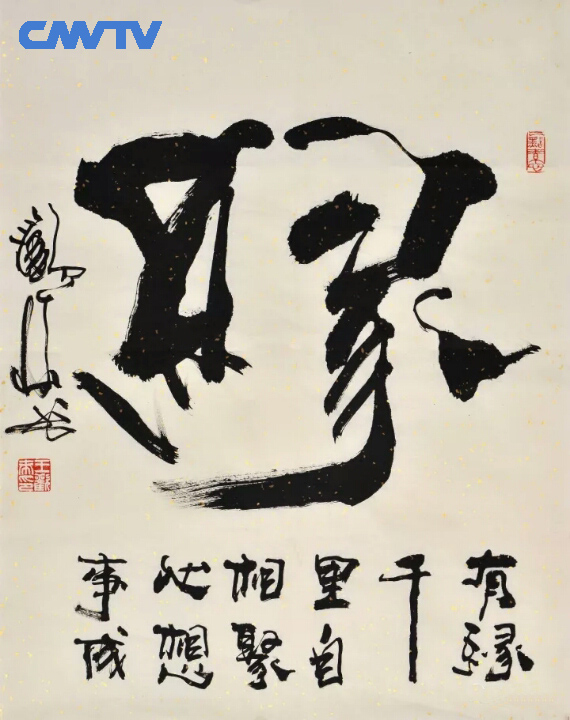 CMWTV
缘
有缘
千
里自
相聚
心想
事成